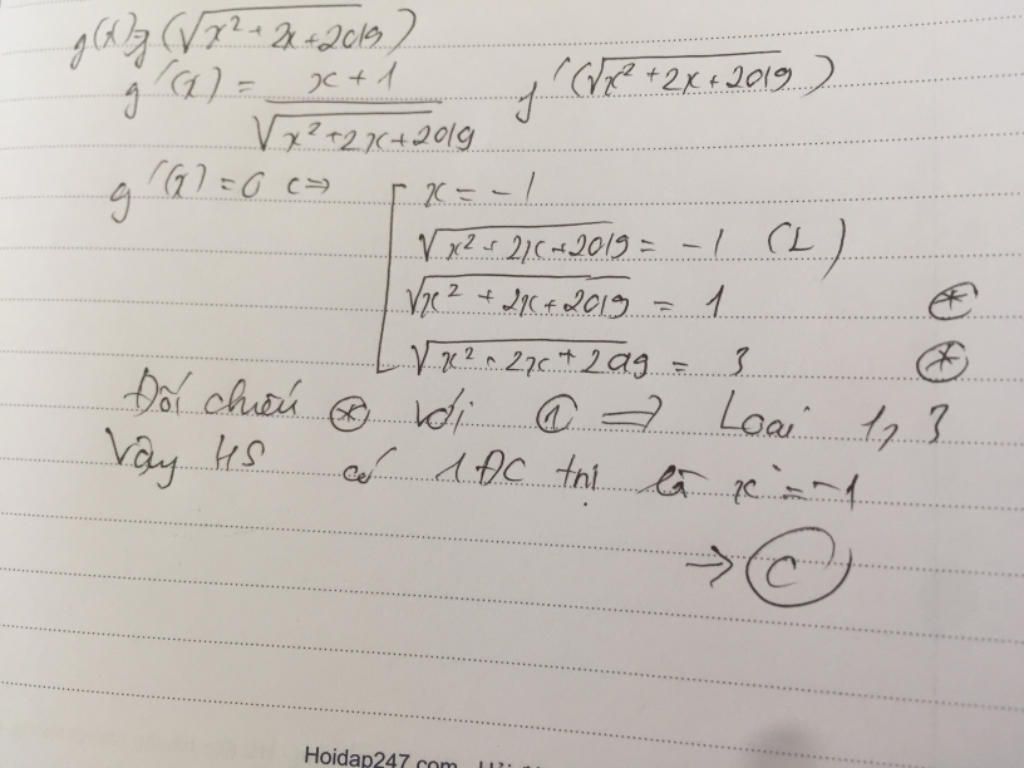 g(x) = f(√(x² + 2x + 2019))
g'(x) = (x + 1)/√(x² + 2x + 2019) f'(√(x² + 2x + 2019))
g'(x) = 0 <=> [ x = -1
√(x² + 2x + 2019) = -1 (L)
√(x² + 2x + 2019) = 1 ⊛
√(x² + 2x + 2019) = 3 ⊛
Đối chiếu ⊛ với ① => Loại 1, 3
Vậy HS có 1 ĐC trị là x = -1
→ C
Hoidap247.com